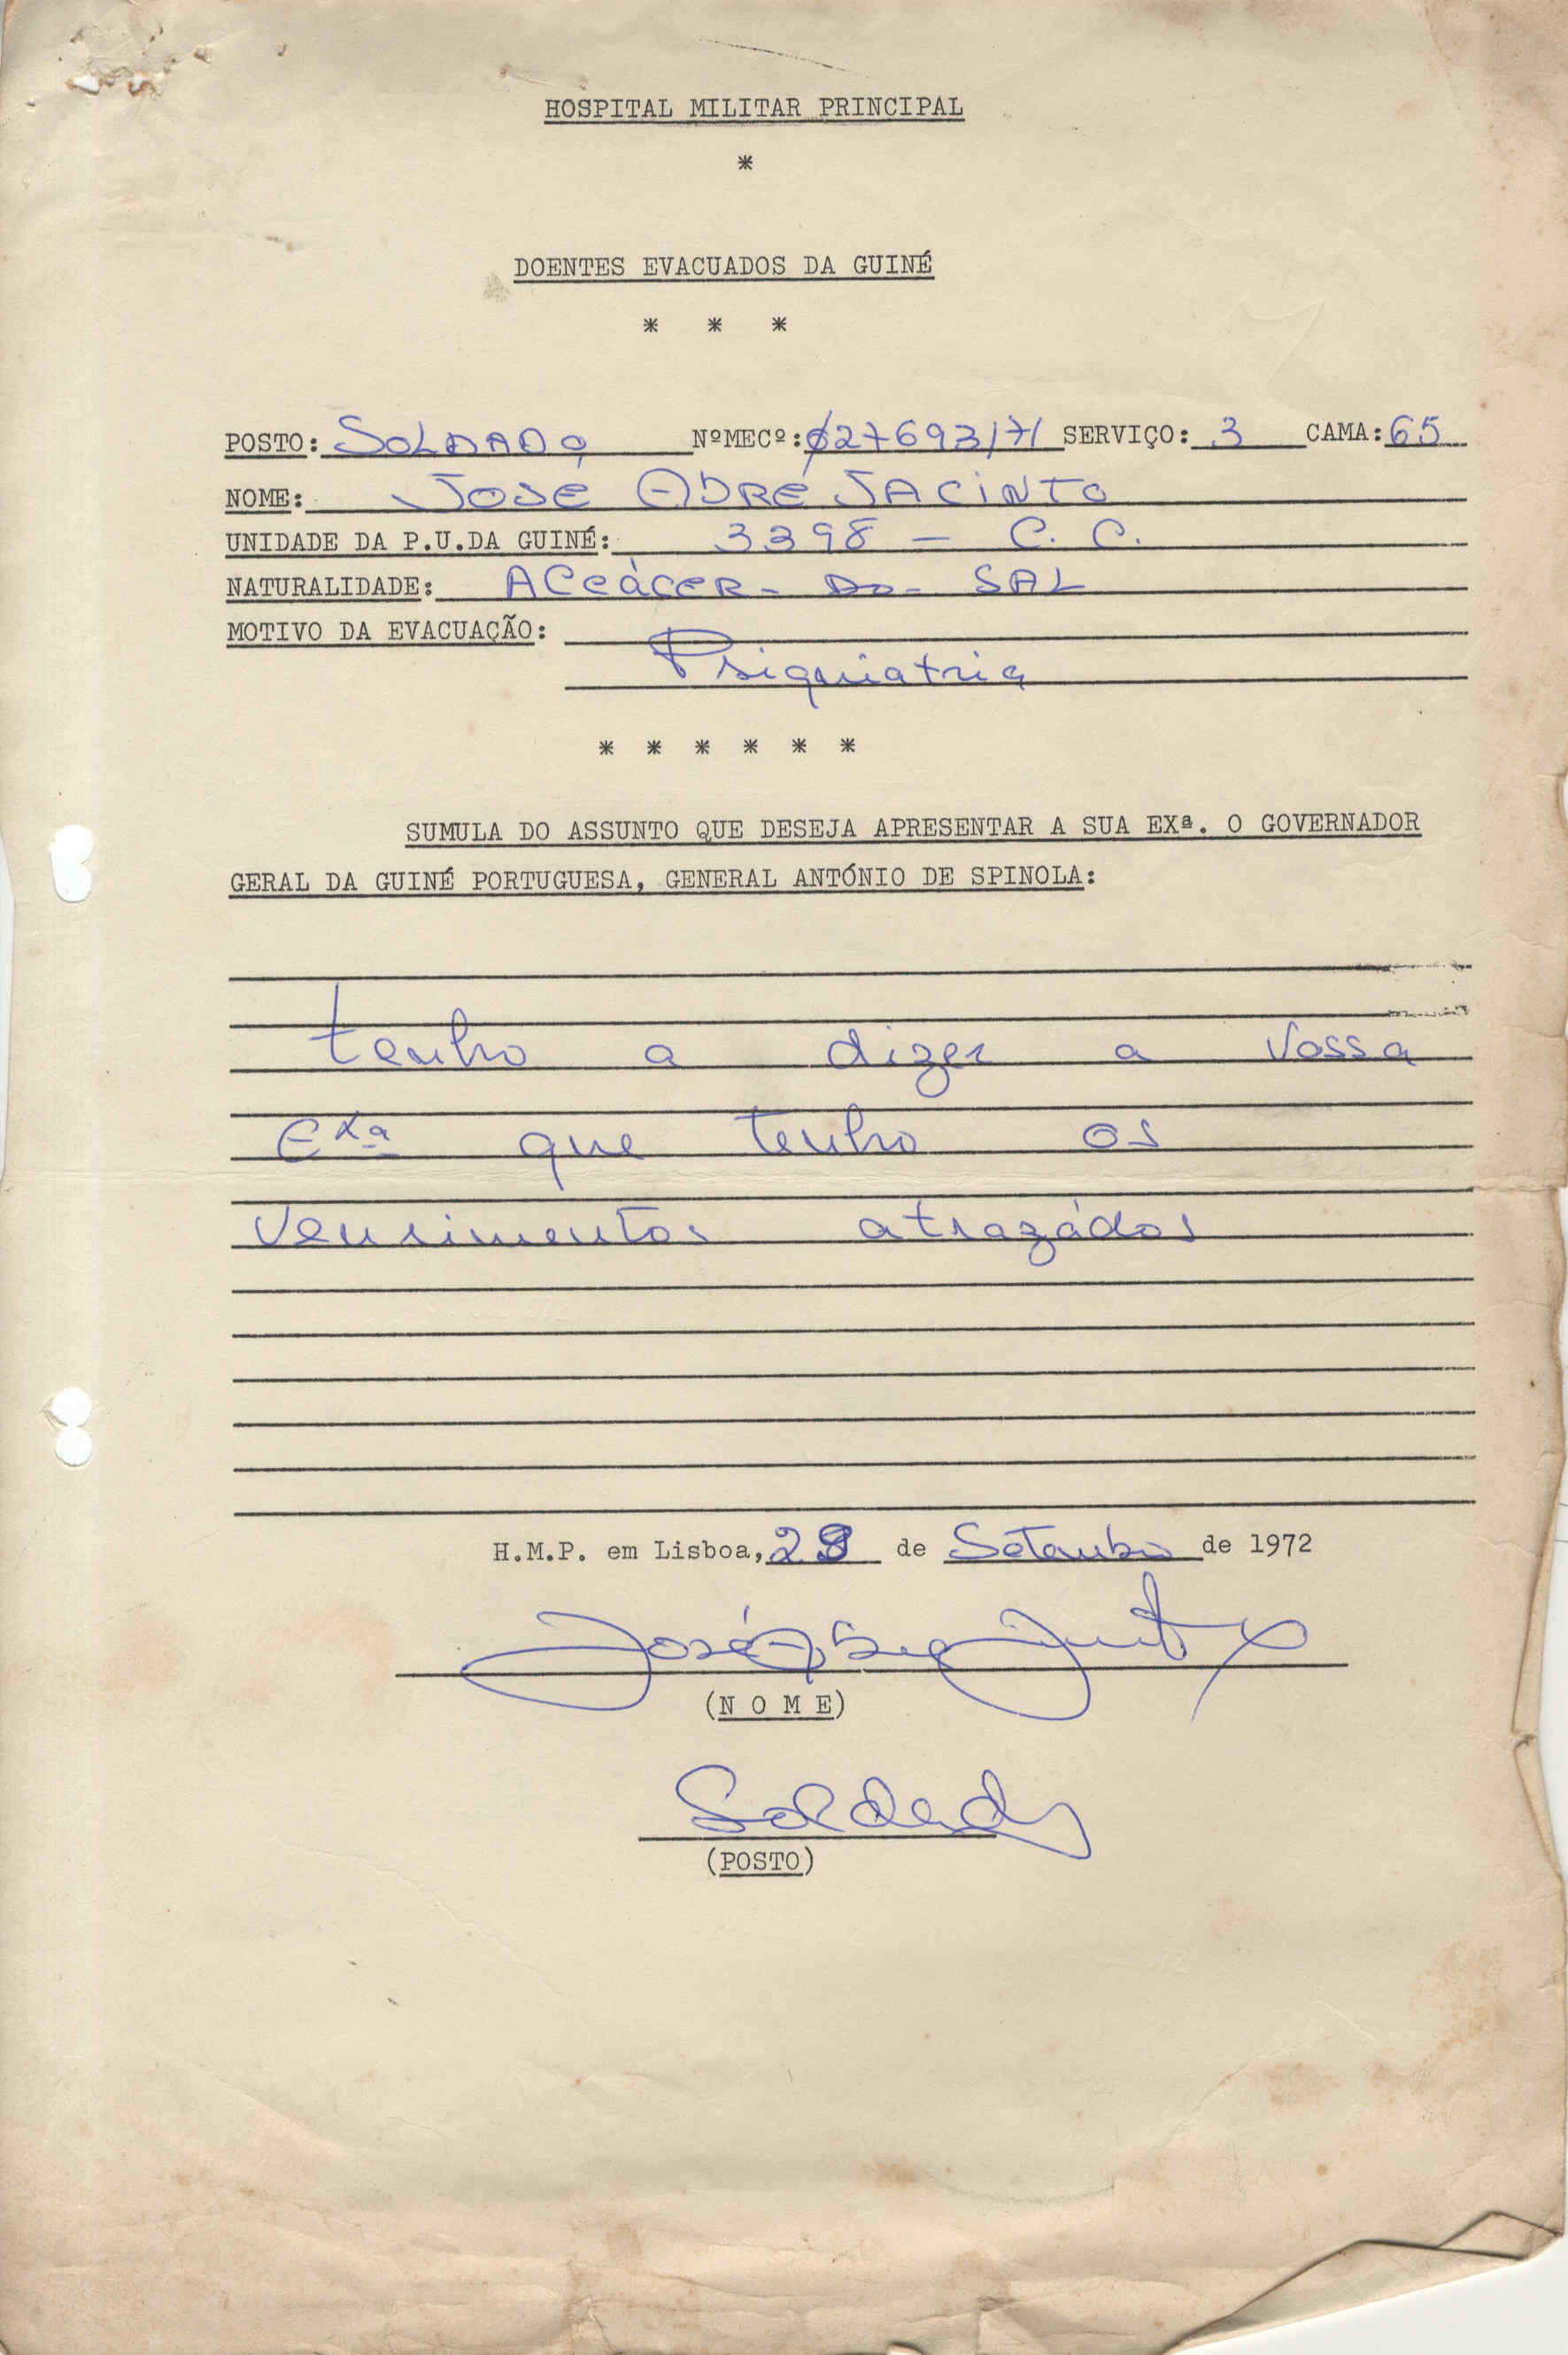 HOSPITAL MILITAR PRINCIPAL
*
DOENTES EVACUADOS DA GUINÉ
* * *
POSTO: SOLDADO NºMECº: 027693/71 SERVIÇO: 3 CAMA: 65
NOME: JOSÉ ADRÉ JACINTO
UNIDADE DA P.U.DA GUINÉ: 3398 — C. C.
NATURALIDADE: ALCÁCER - DO - SAL
MOTIVO DA EVACUAÇÃO:
Psiquiatria
* * * * * *
SUMULA DO ASSUNTO QUE DESEJA APRESENTAR A SUA EXª. O GOVERNADOR
GERAL DA GUINÉ PORTUGUESA, GENERAL ANTÓNIO DE SPINOLA:
tenho a dizer a Vossa
Exª que tenho os
Vensimentos atrazádos
H.M.P. em Lisboa, de Setembro de 1972
José
(N O M E)
Soldado
(POSTO)